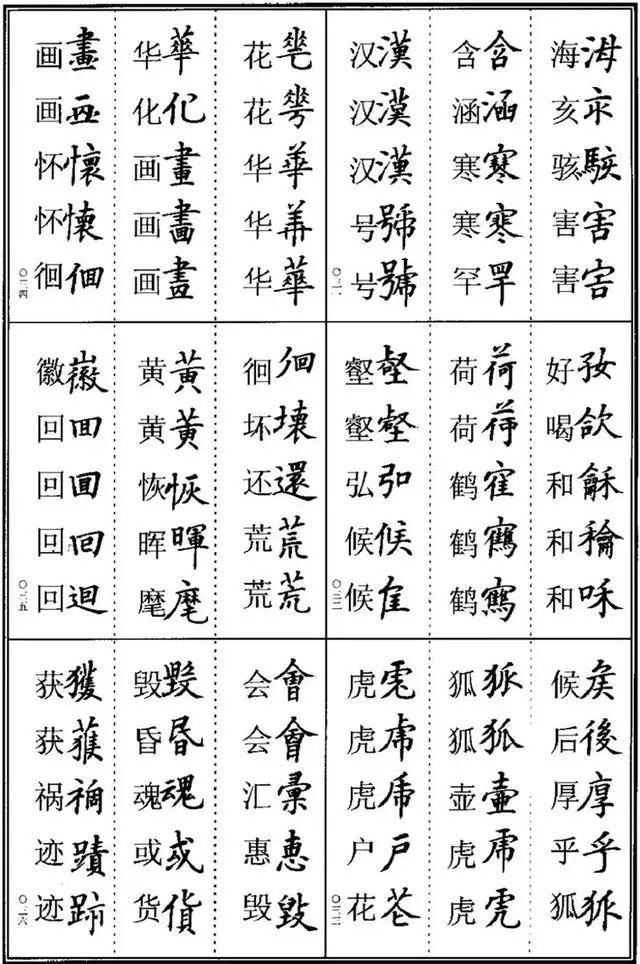 海海 亥亥 骇駭 害害 害害
含含 涵涵 寒寒 寒寒 罕罕
汉漢 汉漢 汉漢 号號 号號
〇三一
好好 喝欱 和龢 和龢 和咊
荷荷 荷荷 鹤隺 鹤鶴 鹤鶴
壑壑 壑壑 弘弘 候候 候隹
〇三二
候矦 后後 厚厚 乎乎 狐狐
狐狐 狐狐 壶壺 虎虎 虎虎
虎虎 虎虎 虎虎 户戶 花花
〇三三
花花 花花 华華 华華 华華
华華 化化 画畫 画畫 画畫
画畫 画画 怀懷 怀懷 徊徊
〇三四
徊徊 坏壞 还還 荒荒 荒荒
黄黄 黄黄 恢恢 晖暉 麾麾
徽徽 回囬 回囬 回回 回迴
〇三五
会會 会會 汇彙 惠惠 毁毀
毁毀 昏昏 魂魂 或或 货貨
获獲 获蒦 祸禍 迹蹟 迹跡
〇三六